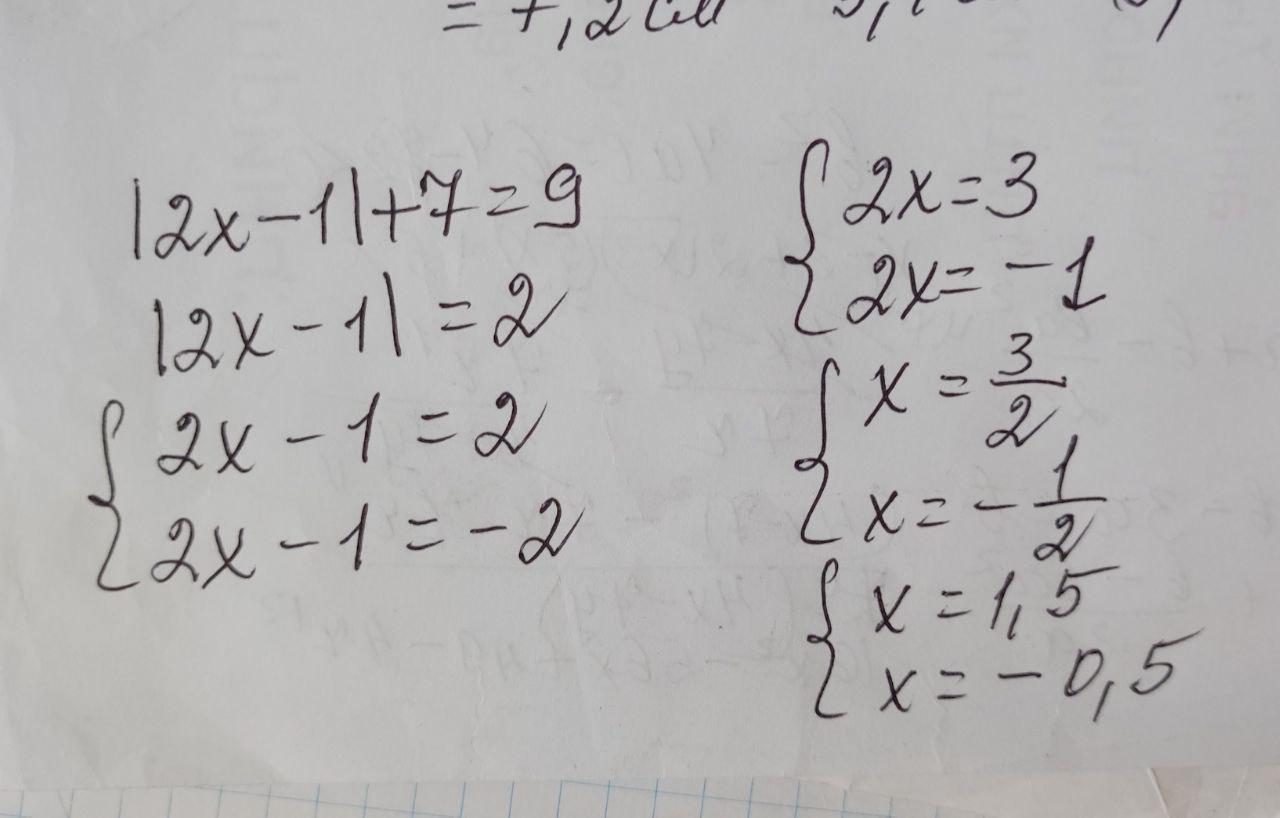 = 7,2 см
|2x-1|+7=9
|2x-1|=2
{2x-1=2
2x-1=-2
{2x=3
2x=-1
{x=3/2
x=-1/2
{x=1,5
x=-0,5